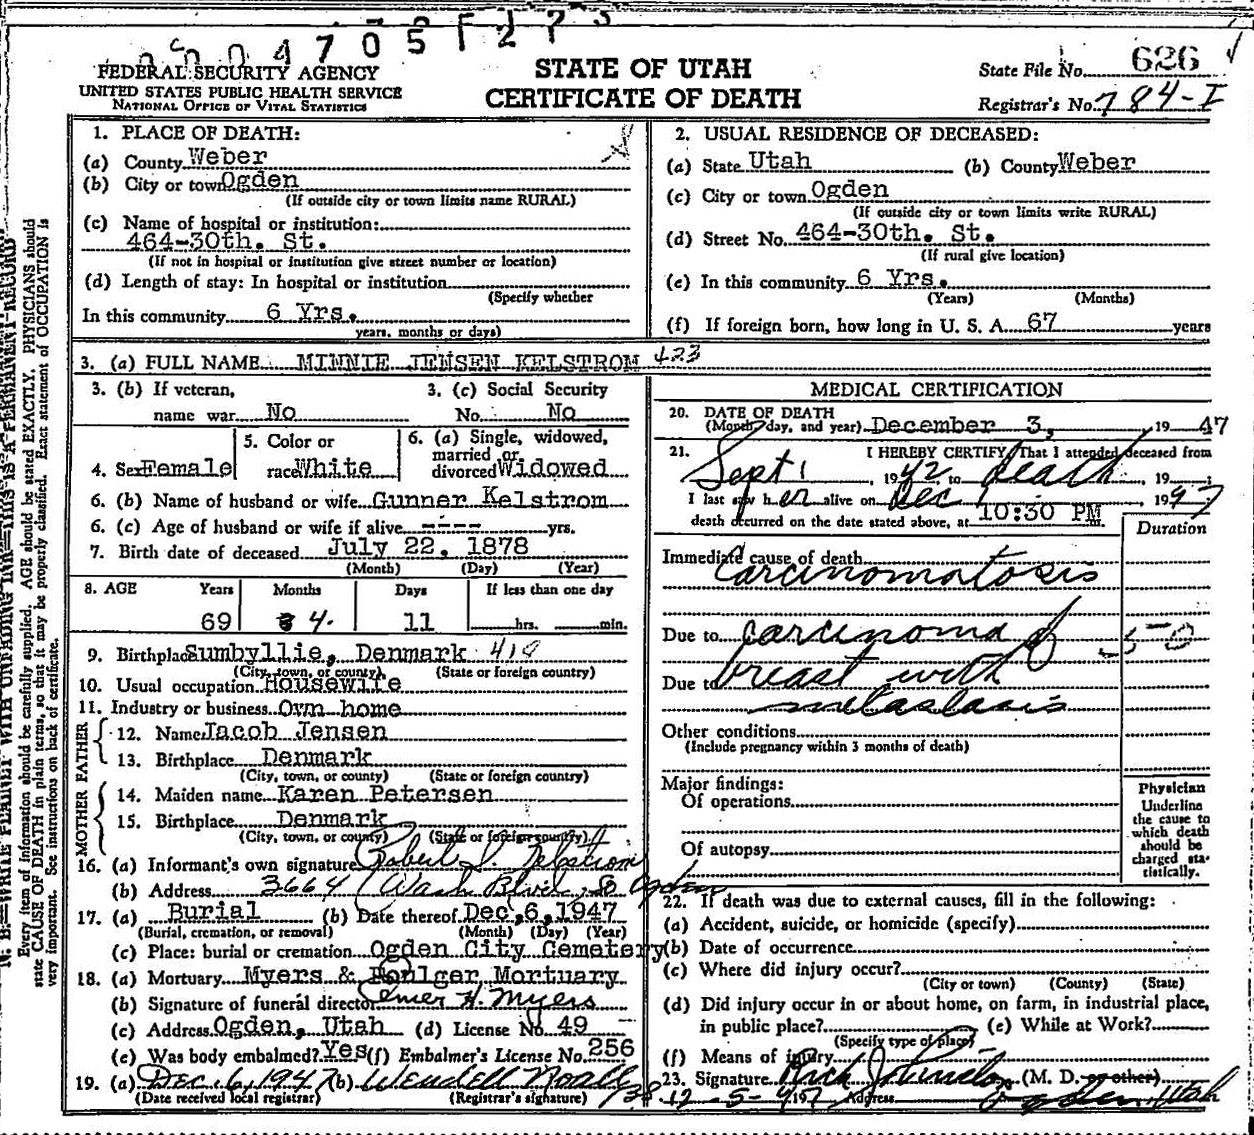 4 7 0 5
FEDERAL SECURITY AGENCY
UNITED STATES PUBLIC HEALTH SERVICE
NATIONAL OFFICE OF VITAL STATISTICS
STATE OF UTAH
CERTIFICATE OF DEATH
State File No. 626
Registrar's No. 784-I
1. PLACE OF DEATH:
(a) County Weber
(b) City or town Ogden
(If outside city or town limits name RURAL)
(c) Name of hospital or institution:
464-30th. St.
(If not in hospital or institution give street number or location)
(d) Length of stay: In hospital or institution
(Specify whether
In this community 6 Yrs.
years, months or days)
2. USUAL RESIDENCE OF DECEASED:
(a) State Utah (b) County Weber
(c) City or town Ogden
(If outside city or town limits write RURAL)
(d) Street No. 464-30th. St.
(If rural give location)
(e) In this community 6 Yrs.
(Years) (Months)
(f) If foreign born, how long in U. S. A. 67 years
3. (a) FULL NAME MINNIE JENSEN KELSTROM 423
3. (b) If veteran, 3. (c) Social Security
name war No No. No
4. Sex Female
5. Color or
race White
6. (a) Single, widowed,
married or
divorced Widowed
6. (b) Name of husband or wife Gunner Kelstrom
6. (c) Age of husband or wife if alive ----- yrs.
7. Birth date of deceased July 22, 1878
(Month) (Day) (Year)
8. AGE Years Months Days If less than one day
69 4 11 hrs. min.
9. Birthplace Sumbyllie, Denmark
(City, town, or county) (State or foreign country)
10. Usual occupation Housewife
11. Industry or business Own home
FATHER
12. Name Jacob Jensen
13. Birthplace Denmark
(City, town, or county) (State or foreign country)
MOTHER
14. Maiden name Karen Petersen
15. Birthplace Denmark
(City, town, or county) (State or foreign country)
16. (a) Informant's own signature Robert
(b) Address 3664 Wash Blvd, So Ogden
17. (a) Burial (b) Date thereof Dec, 6, 1947
(Burial, cremation, or removal) (Month) (Day) (Year)
(c) Place: burial or cremation Ogden City Cemetery
18. (a) Mortuary Myers & Foulger Mortuary
(b) Signature of funeral director Elmer H. Myers
(c) Address Ogden, Utah (d) License No. 49
(e) Was body embalmed? Yes (f) Embalmer's License No. 256
19. (a) Dec. 6, 1947 (b) Wendell Noall
(Date received local registrar) (Registrar's signature)
MEDICAL CERTIFICATION
20. DATE OF DEATH
(Month, day, and year) December 3, 1947
21. I HEREBY CERTIFY, That I attended deceased from
Sept 1, 1942 to death, 19
I last saw her alive on Dec 1 1947
death occurred on the date stated above, at 10:30 PM m.
Duration
Immediate cause of death
Carcinomatosis
Due to carcinoma of
Due to breast with
metastasis
Other conditions
(Include pregnancy within 3 months of death)
Major findings:
Of operations
Of autopsy
Physician
Underline
the cause to
which death
should be
charged sta-
tistically.
22. If death was due to external causes, fill in the following:
(a) Accident, suicide, or homicide (specify)
(b) Date of occurrence
(c) Where did injury occur?
(City or town) (County) (State)
(d) Did injury occur in or about home, on farm, in industrial place,
in public place? (e) While at Work?
(Specify type of place)
(f) Means of injury
23. Signature (M. D. or other)
12-5-47 Address Ogden, Utah
N. B.—WRITE PLAINLY WITH UNFADING INK—THIS IS A PERMANENT RECORD.
Every item of information should be carefully supplied. AGE should be stated EXACTLY. PHYSICIANS should
state CAUSE OF DEATH in plain terms, so that it may be properly classified. Exact statement of OCCUPATION is
very important. See instructions on back of certificate.